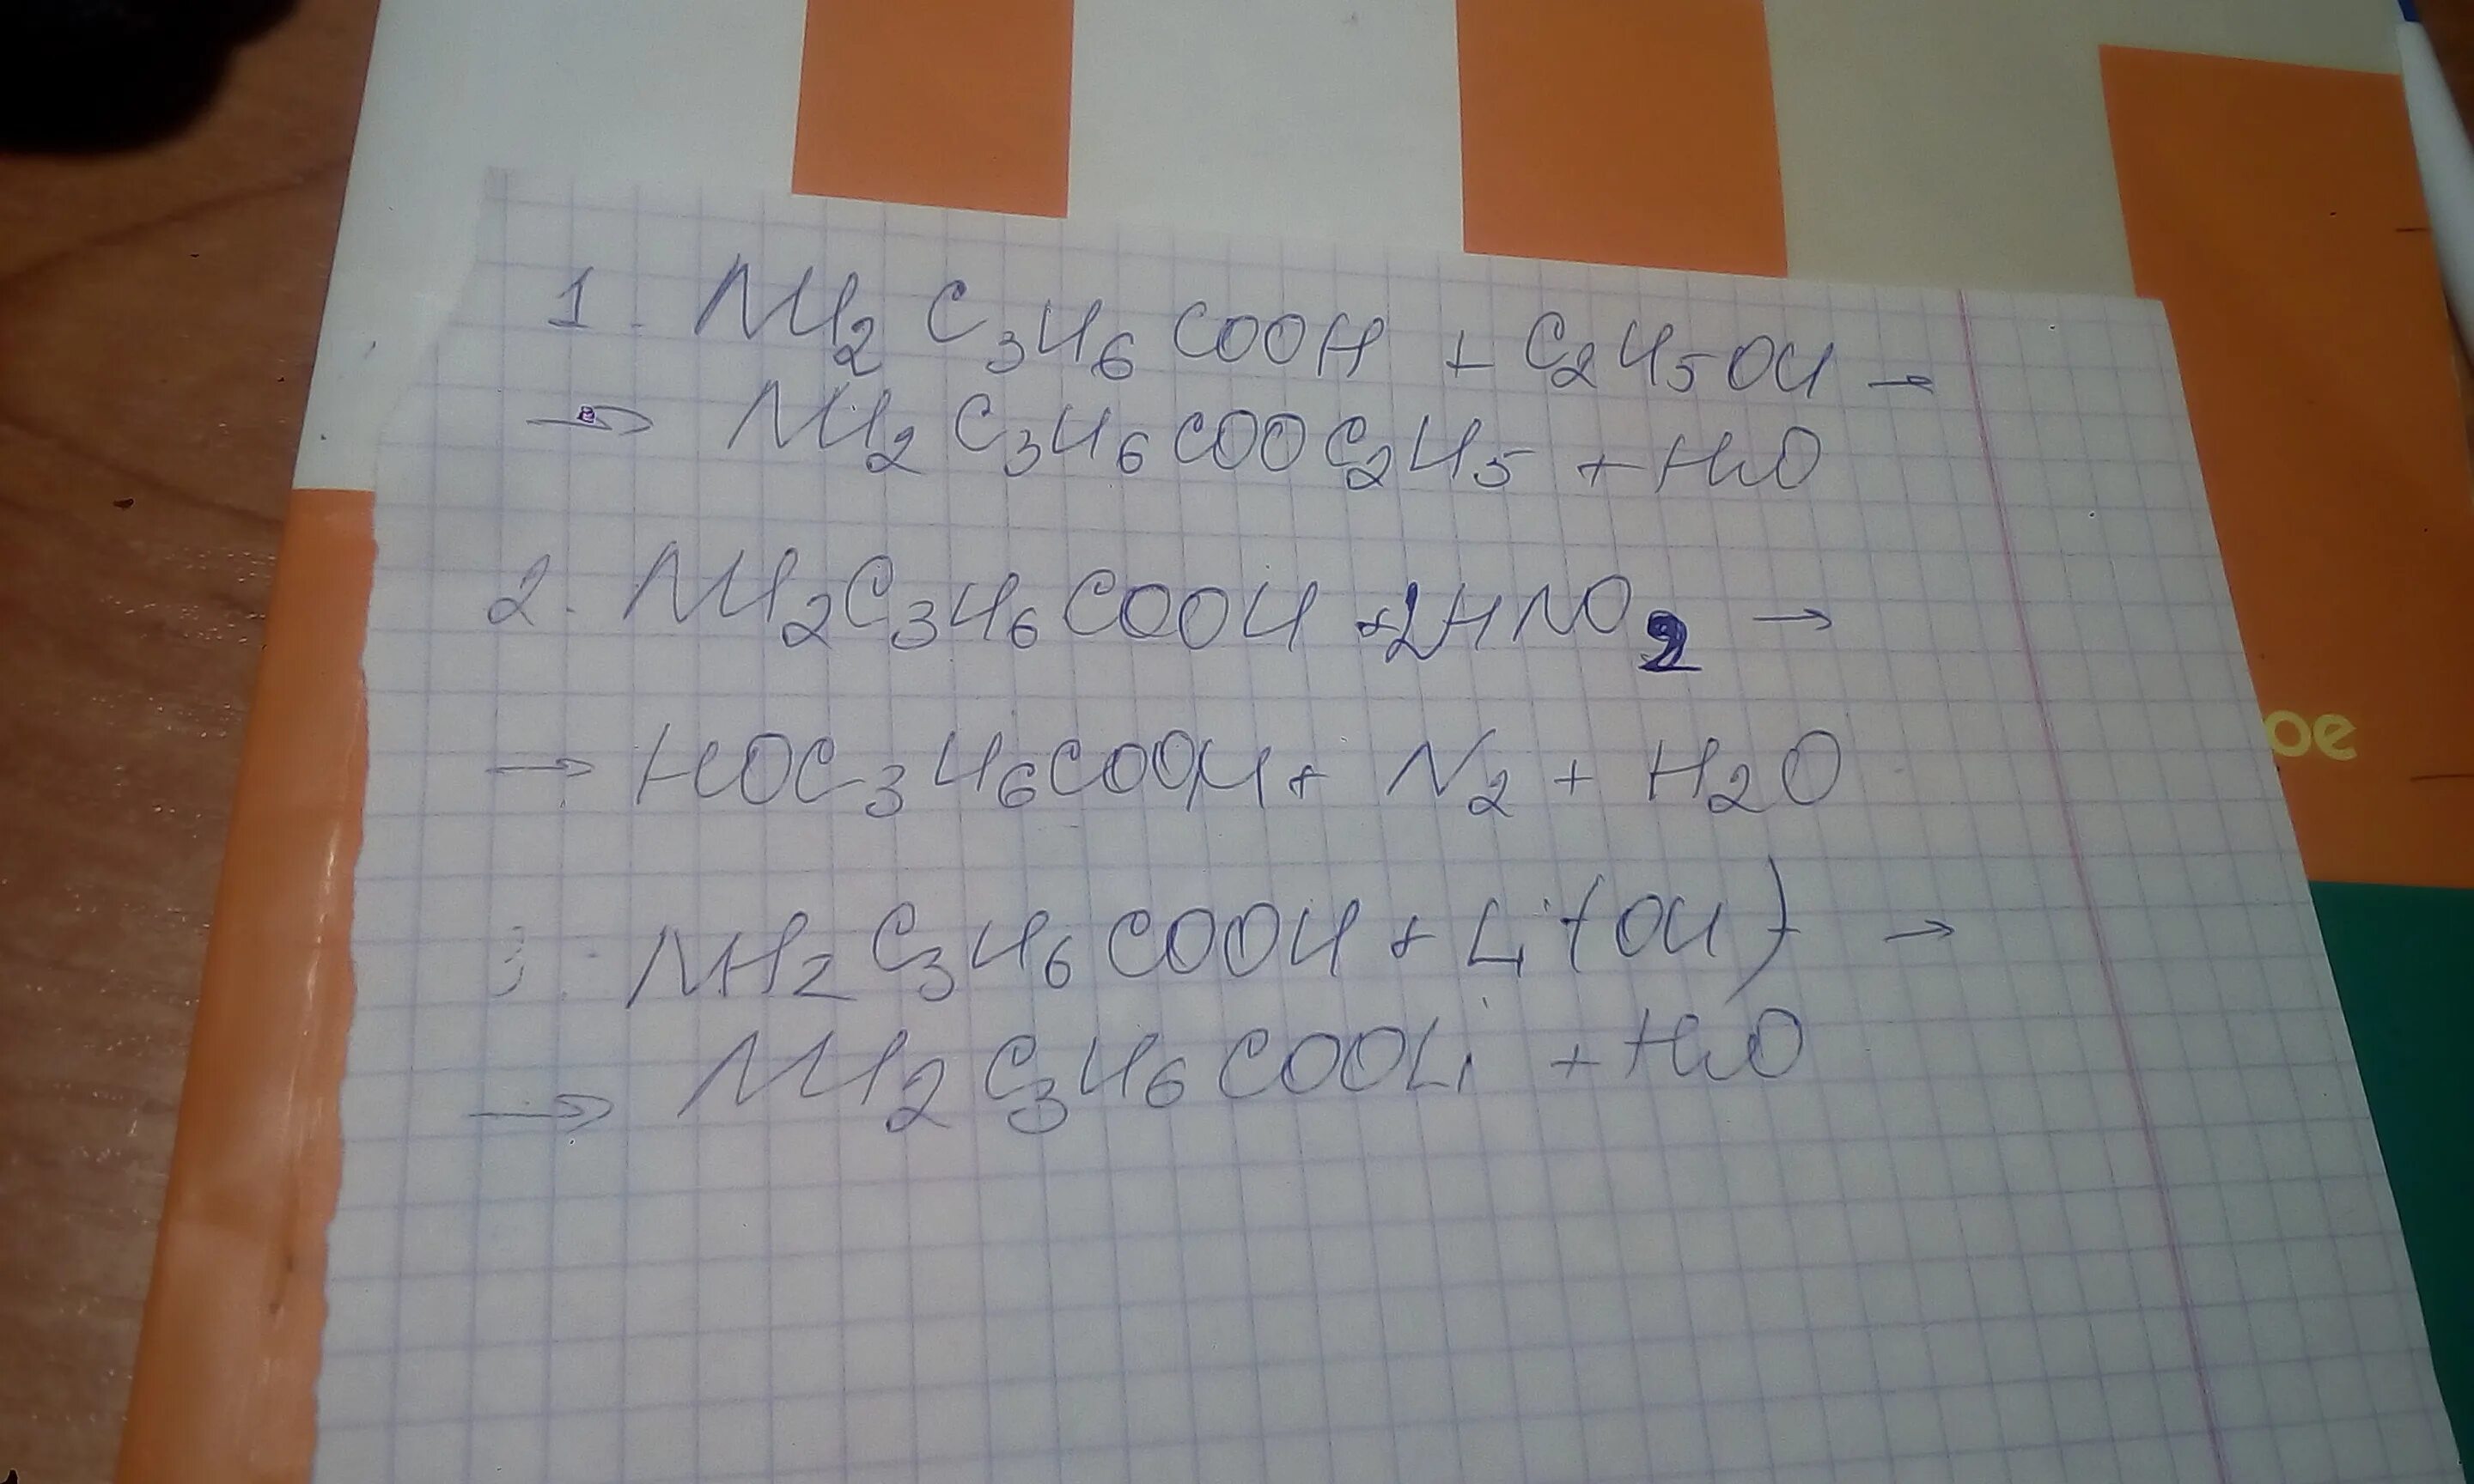 1. NH2 C3H6 COOH + C2H5OH →
→ NH2 C3H6COOC2H5 + H2O
2. NH2C3H6COOH + 2HNO2 →
→ HOC3H6COOH + N2 + H2O
3. NH2 C3H6 COOH + Li(OH) →
→ NH2 C3H6 COOLi + H2O
ое